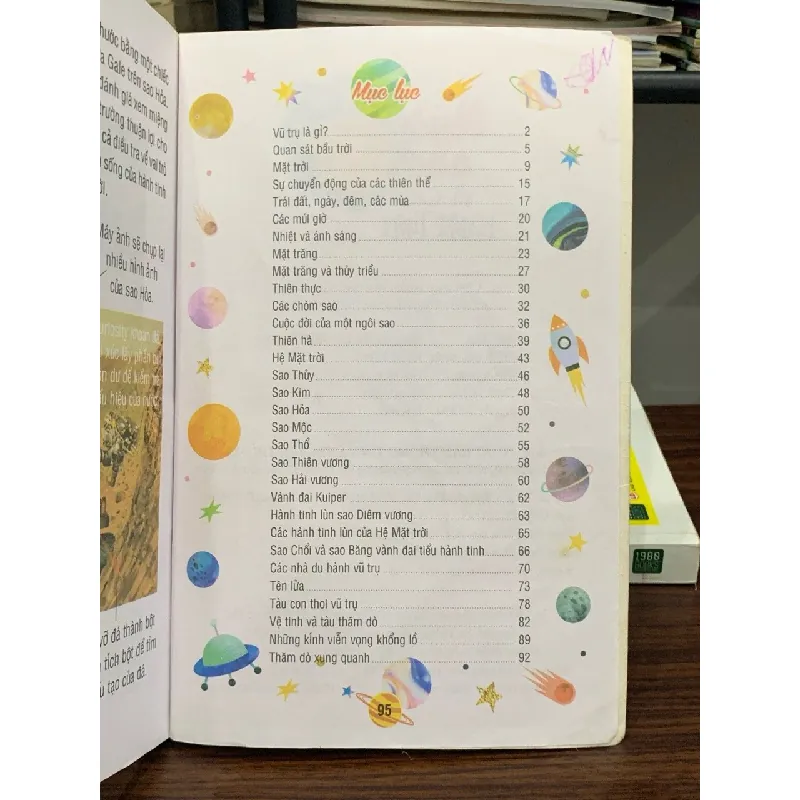 thước bằng một chiếc
Gale trên sao Hỏa.
đánh giá xem miệng
trường thuận lợi cho
cả điều tra về vai trò
sống của hành tinh
Máy ảnh sẽ chụp lại
nhiều hình ảnh
của sao Hỏa.
vỡ đá thành bột
tích bột để tìm
tạo của đá.
Mục lục
Vũ trụ là gì? 2
Quan sát bầu trời 5
Mặt trời 9
Sự chuyển động của các thiên thể 15
Trái đất, ngày, đêm, các mùa 17
Các múi giờ 20
Nhiệt và ánh sáng 21
Mặt trăng 23
Mặt trăng và thủy triều 27
Thiên thực 30
Các chòm sao 32
Cuộc đời của một ngôi sao 36
Thiên hà 39
Hệ Mặt trời 43
Sao Thủy 46
Sao Kim 48
Sao Hỏa 50
Sao Mộc 52
Sao Thổ 55
Sao Thiên vương 58
Sao Hải vương 60
Vành đai Kuiper 62
Hành tinh lùn sao Diêm vương 63
Các hành tinh lùn của Hệ Mặt trời 65
Sao Chổi và sao Băng vành đai tiểu hành tinh 66
Các nhà du hành vũ trụ 70
Tên lửa 73
Tàu con thoi vũ trụ 78
Vệ tinh và tàu thăm dò 82
Những kính viễn vọng khổng lồ 89
Thăm dò xung quanh 92
95
1980
BOOKS